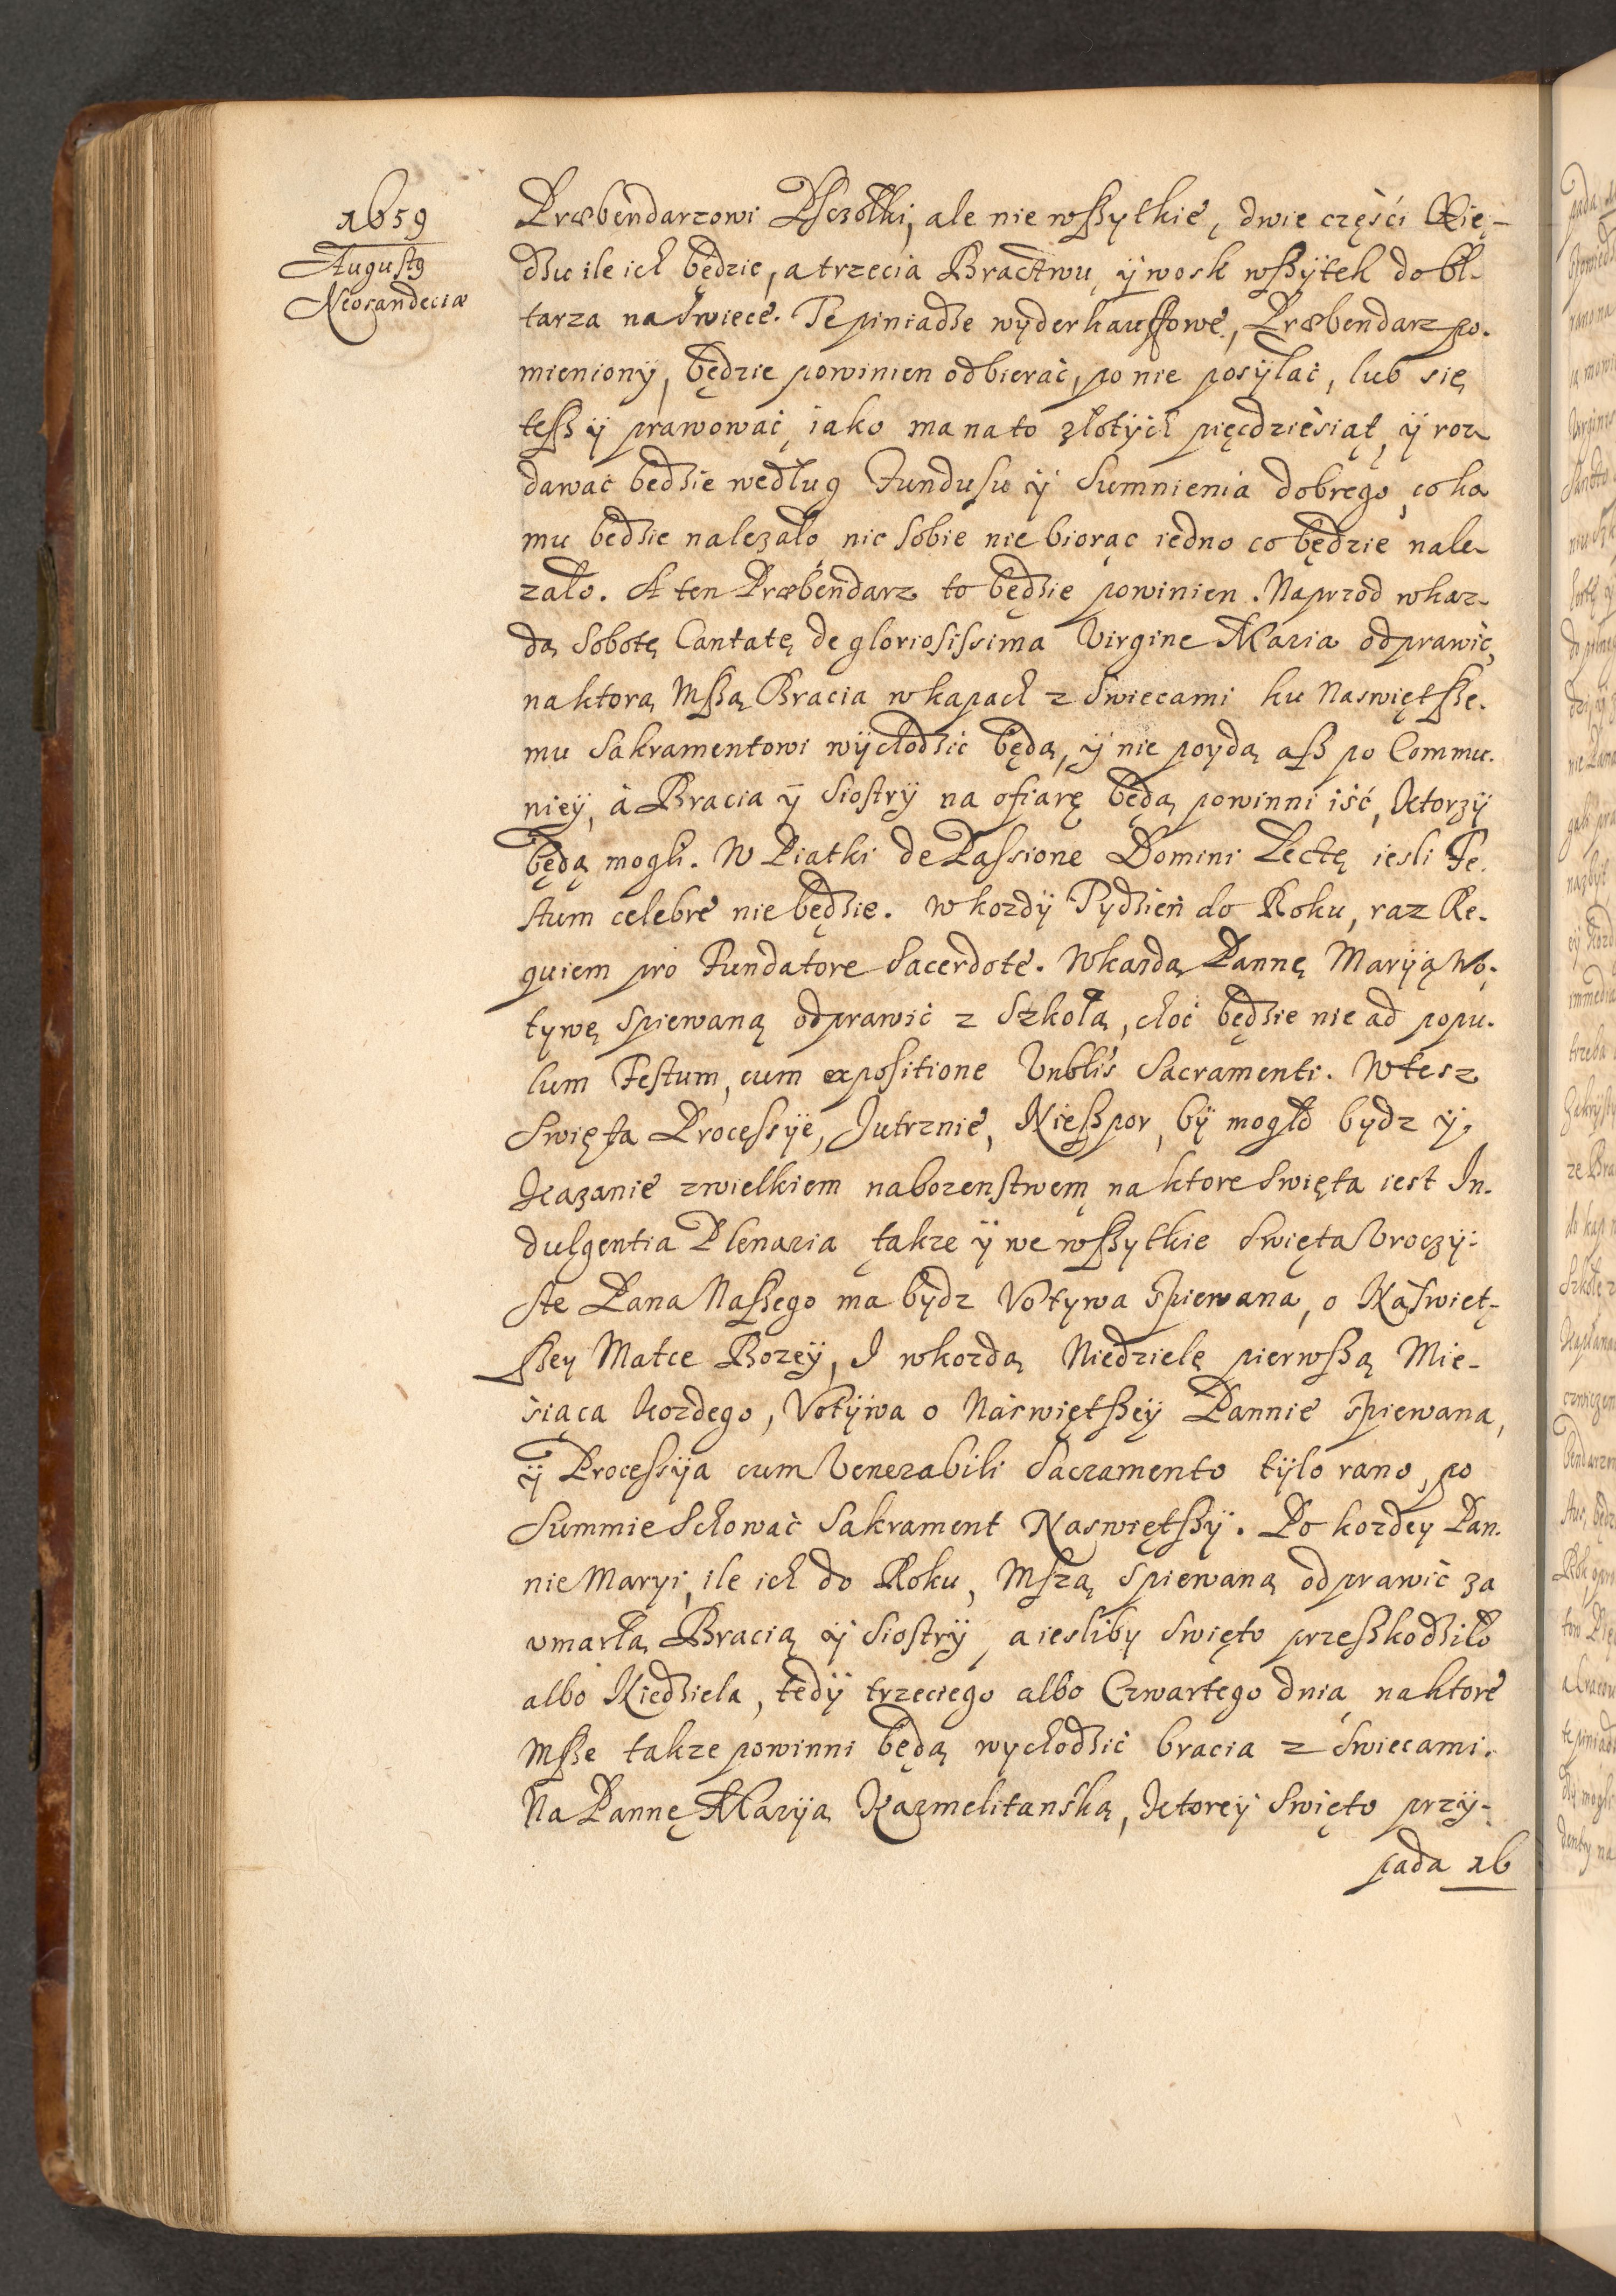 1659
Augustꝰ
Neosandeciæ
Præbendarzowi Psczołki, ale nie wßytkie, dwie częśći Xię-
dzu ile ich będzie, a trzecia Bractwu, ÿ wosk wßÿtek do oł-
tarza na świece. Te piniadze wÿderkauffowe, Præbendarz po-
mieniony, będzie powinien odbierać, po nie posÿłać, lub się
teß ÿ prawować, iako ma na to złotÿch pięcdziesiąt, ÿ roz
dawać będzie według Fundusu ÿ Sumnienia dobrego, co ko
mu będzie nalezało nic sobie nie biorąc iedno co będzie nale-
zało. A ten Præbendarz to będzie powinien. Naprzod w kaz-
dą Sobotę Cantatę de gloriosissima Virgine Maria odprawić,
na ktorą Mßą Bracia w kapach z świecami ku Naswiętße-
mu Sakramentowi wÿchodzić będą, ÿ nie poydą aß po Commu-
niey, à Bracia ÿ Siostrÿ na ofiarę będą powinni iść, Ktorzÿ
będą mogli. W Piatki de Passione Domini Lectę iesli Fe-
stum celebre nie będzie. W kozdÿ Tydzień do Roku, raz Re-
quiem pro Fundatore Sacerdote. W kazdą Pannę Marÿią Wo-
tywę spiewaną odprawić z Szkołą, choć będzie nie ad popu-
lum Festum, cum expositione Vnblis Sacramenti. W tesz
Swięta Processÿe, Jutrznie, Nießpor, bÿ mogło bydz ÿ
Kazanie z wielkiem nabozenstwem na ktore swięta iest In-
dulgentia Plenaria takze ÿ we wßytkie swięta Vroczÿ-
ste Pana Naßego ma bÿdz Votywa spiewana, o Naświęt-
ßey Matce Bozeÿ, I w kozdą Niedzielę pierwßą Mie-
siąca kozdego, Votÿwa o Naświętßeÿ Pannie spiewana,
ÿ Processÿa cum Venerabili Sacramento tÿlo rano, po
Summie Schować Sakrament Naswiętßÿ. Po kozdey Pan-
nie Maryi, ile ich do Roku, Mszą spiewaną odprawić za
vmarłą Bracią ÿ Siostrÿ, a iesliby Swięto przeßkodziło
albo Niedziela, tedÿ trzeciego albo Czwartego dnia na ktore
Mße takze powinni będą wychodzić bracia z świecami.
Na Pannę Marÿą Karmelitańską, Ktoreÿ Swięto przÿ-
pada 16